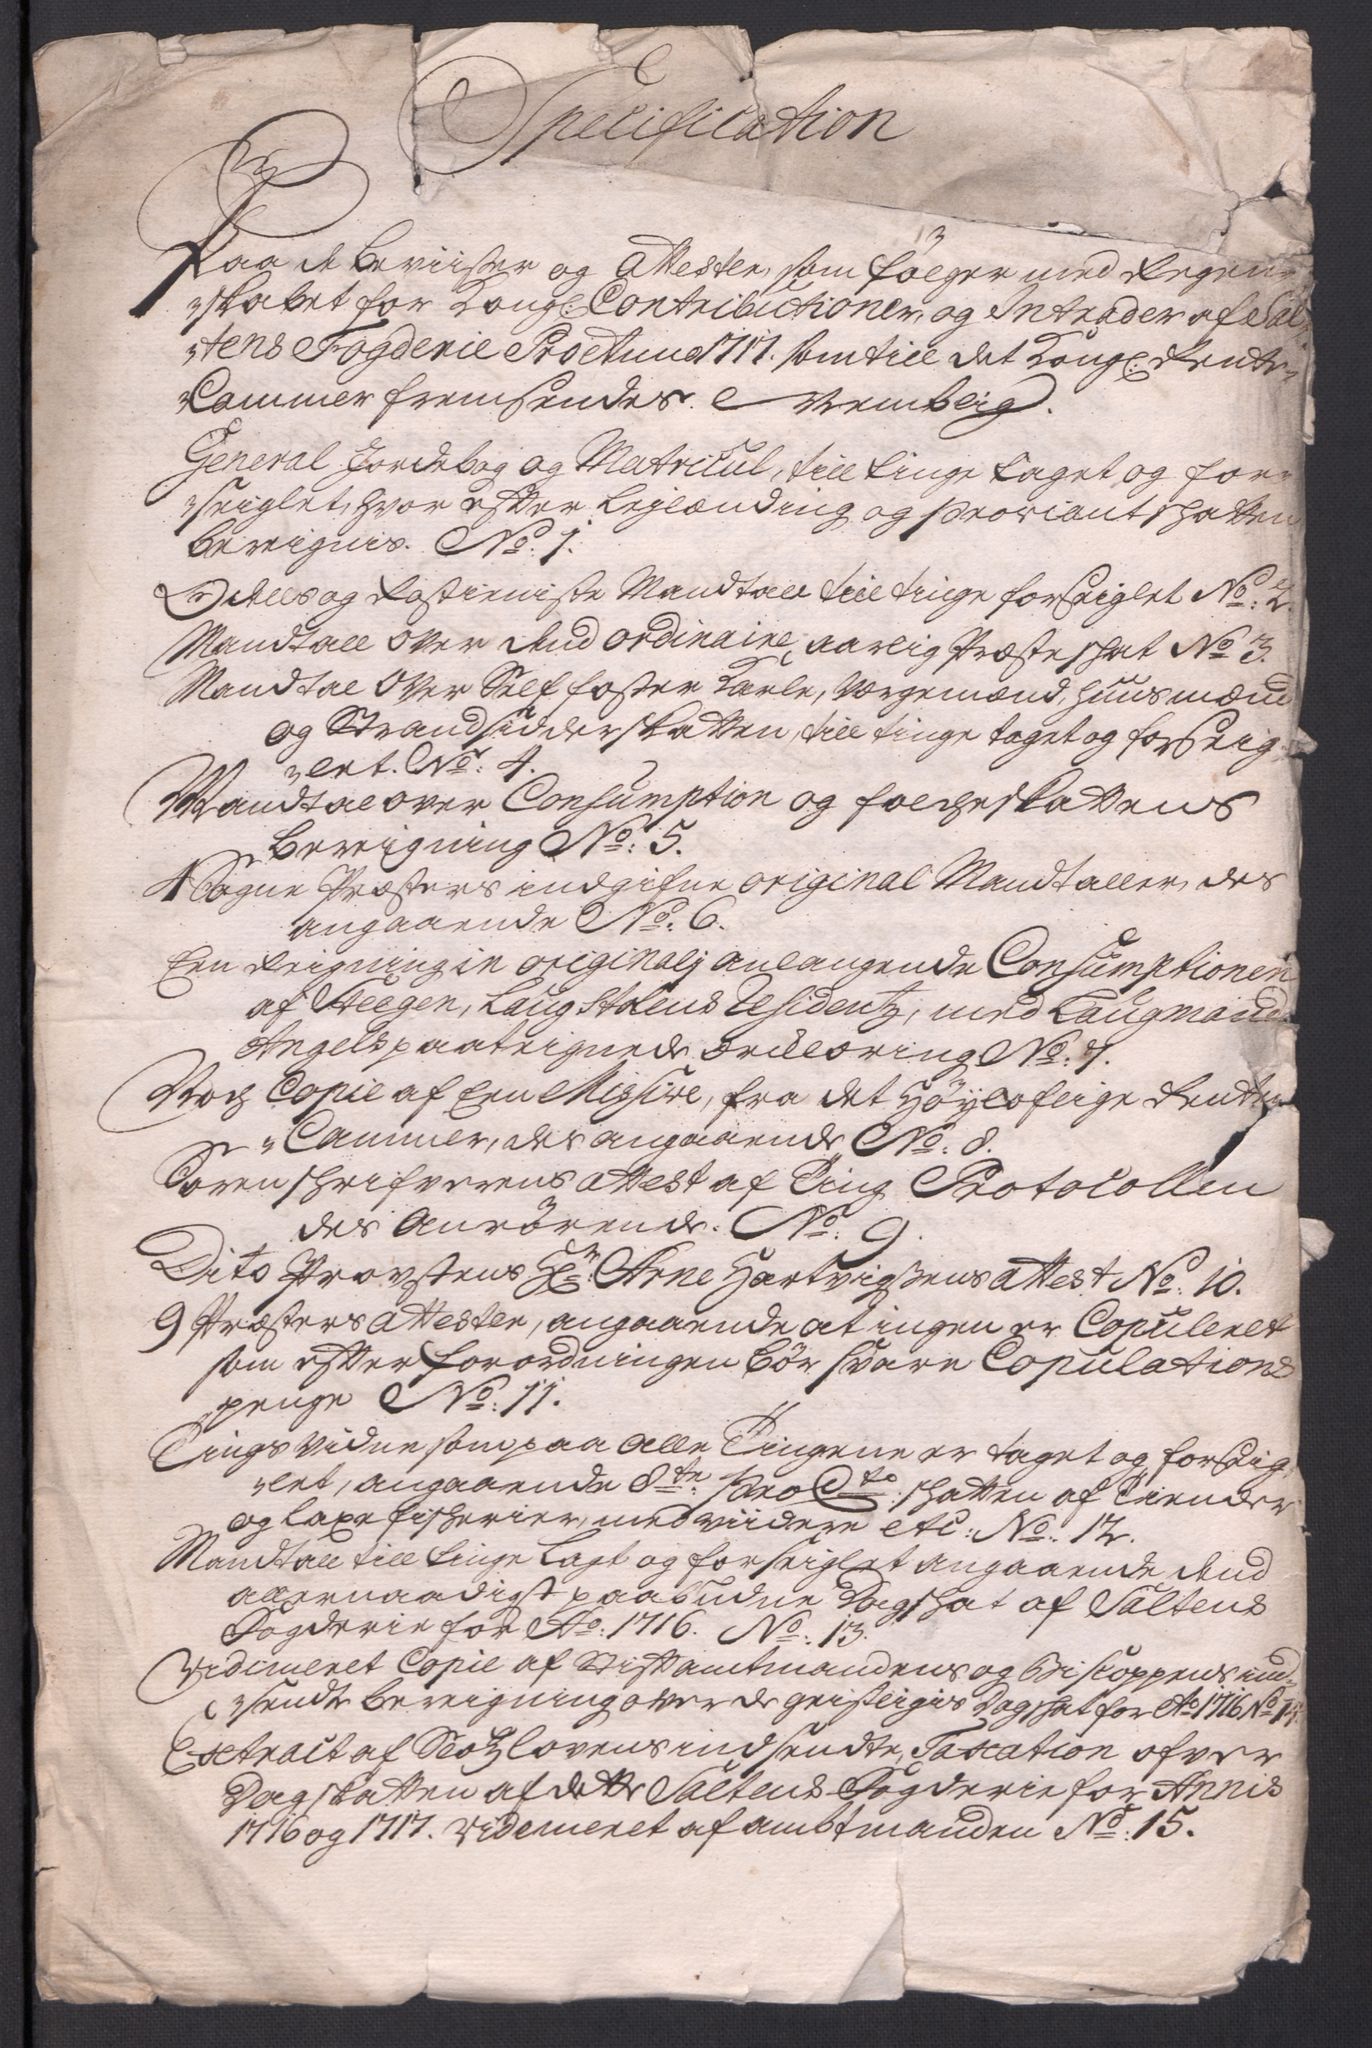 Specification
Paa de beviiser og Attester, som følger med Regen-
skabet for Kongl: Contributioner, og Intrader af Sal-
tens Fogderie Pro Anno 1717. som till det Kongl: Rente-
Cammer fremsendes. Nemblig.
General Jordebog og Matricul, till tinge taget og for-
seiglet, hvor efter Leylænding og Proviant schatten
bereignis. No: 1.
Odells og Rostieniste Mandtall till tinge forseiglet No: 2.
Mandtall over dend ordinaire, aarlig Præste schat No 3.
Mandtal over Self foster Karle, Vergemænd, Huusmænd
og Strandsidderskatten, till tinge taget og forseig-
let. No: 4.
Mandtal over Consumption og folcheskattens
bereigning No: 5.
4 Sogne Præsters indgifne original Mandtaller, des
angaaende No: 6.
Een Reigning in originalj anlangende Consumptionen
af Steegen, Laugstolens Residentz, med Laugmand
Angels paateignede ercklæring No: 7.
Noch Copie af Een Missive, fra det Høyloflige Rente-
Cammer, des angaaende No: 8.
Sorenschrifverens attest af Ting Protocollen
des anrørende. No: 9.
Dito Provstens Hr: Arne Hartvigsens attest No: 10.
9 Præsters attester, angaaende at ingen er Copuleret
som efter forordningen bør svare Copulations
penge No: 11.
Tingsvidne som paa alle Tingene er taget og forseig-
let, angaaende 8te pro Cto: schatten af Tiender
og laxefischerier, med viidere etc: No: 12.
Mandtall till tinge lagt og forseiglet angaaende dend
allernaadigst paabudne Dagschat af Saltens
Fogderie for Ao: 1716. No: 13.
Vidimeret Copie af Stiftamtmandens og Biscoppens ind-
sendte bereigning over de geistligis Dagschat for Ao 1716 No 14.
Extract af Skoglovens indsendte, Taxation ofver
Dagskatten af dette Saltens Fogderie for Annis
1716 og 1717. Videmeret af ambtmanden No: 15.